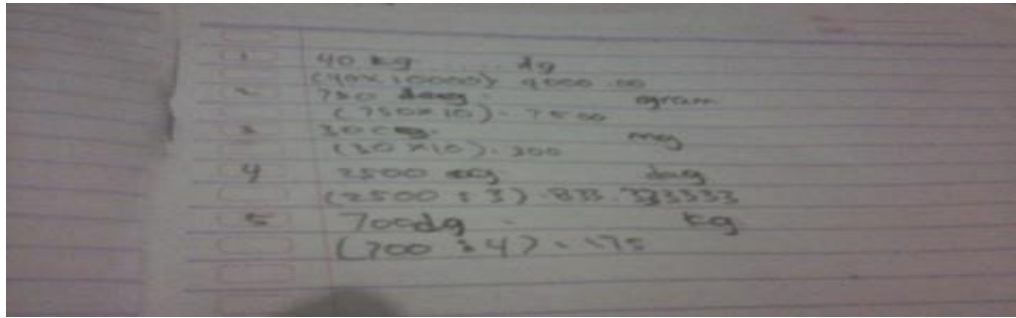 1 40 kg ..... dg
(40 x 10000) 4000.00
2 750 gram
(750 x 10) - 7500
3 30 cg. mg
(30 x 10). 300
4 2500 dag
(2500 : 3) . 833.333333
5 700dg - kg
(700 : 4) = 175